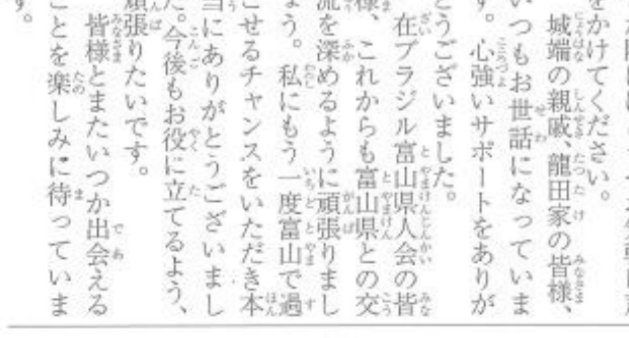 をかけてください。
城端の親戚、龍田家の皆様、
いつもお世話になっていま
す。心強いサポートをありが
とうございました。
在ブラジル富山県人会の皆
様、これからも富山県との交
流を深めるように頑張りまし
ょう。私にもう一度富山で過
ごせるチャンスをいただき本
当にありがとうございまし
た。今後もお役に立てるよう、
頑張りたいです。
皆様とまたいつか出会える
ことを楽しみに待っていま
す。